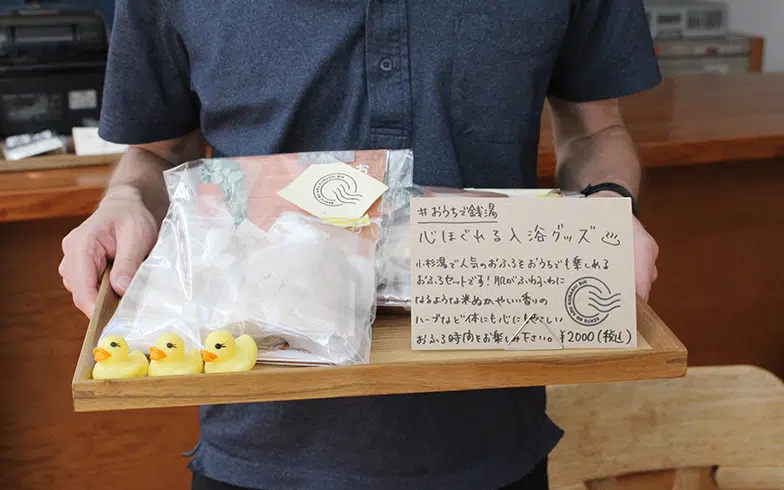 #おうちで銭湯
心ほぐれる入浴グッズ♨
小杉湯で人気のおふろをおうちでも楽しめる
おふろセットです!肌がふわふわに
なるような米ぬかやいい香りの
ハーブなど体にも心にもやさしい
おふろ時間をお楽しみ下さい。¥2000(税込)